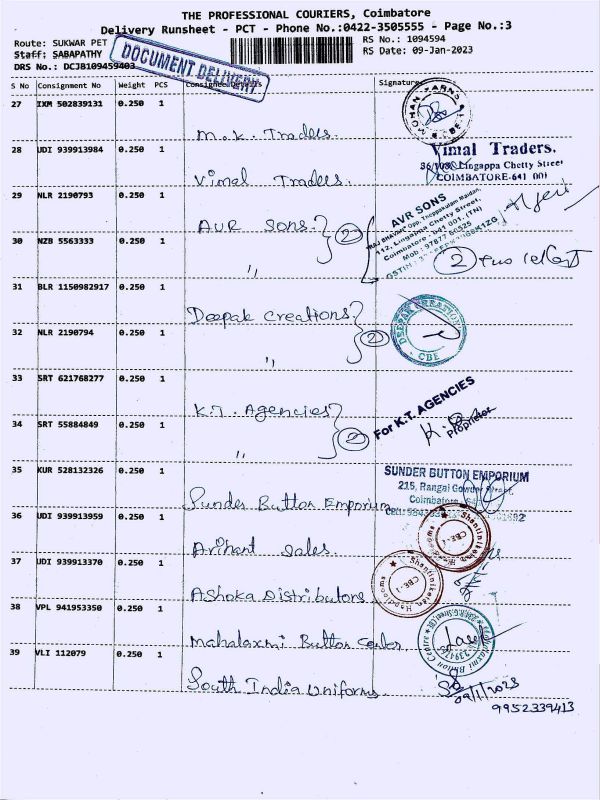 THE PROFESSIONAL COURIERS, Coimbatore
Delivery Runsheet - PCT - Phone No.:0422-3505555 - Page No.:3
Route: SUKWAR PET
RS No.: 1094594
Staff: SABAPATHY
RS Date: 09-Jan-2023
DRS No.: DCJB109459403
DOCUMENT DELIVERY
S No Consignment No Weight PCS Consignee Details Signature
27 IXM 502839131 0.250 1
M.K. Traders.
28 UDI 939913984 0.250 1
Vimal Traders.
Vimal Traders.
Lingappa Chetty Street
COIMBATORE-641 001
29 NLR 2190793 0.250 1
AVR Sons. } (2)
AVR SONS
Opp. Theppakulam Maidan,
112, Lingappa Chetty Street,
Coimbatore - 641 001. (TN)
Mob : 97877 60525
30 NZB 5563333 0.250 1
"
(2)
31 BLR 1150982917 0.250 1
Deepak Creations } (2)
DEEPAK CREATIONS
CBE
32 NLR 2190794 0.250 1
"
33 SRT 621768277 0.250 1
K.T. Agencies } (2)
For K.T. AGENCIES
Proprietor
34 SRT 55884849 0.250 1
"
35 KUR 528132326 0.250 1
Sunder Button Emporium
SUNDER BUTTON EMPORIUM
215, Rangai Gowder Street,
Coimbatore
36 UDI 939913959 0.250 1
Arihant Sales.
Shantiniketan Handlooms
CBE-1
37 UDI 939913370 0.250 1
Ashoka Distributors
Shantiniketan Handlooms
CBE-1
38 VPL 941953350 0.250 1
Mahalaxmi Button Center
Mahalaxmi Button Centre
39 VLI 112079 0.250 1
South India Uniforms
09/1/2023
9952339413